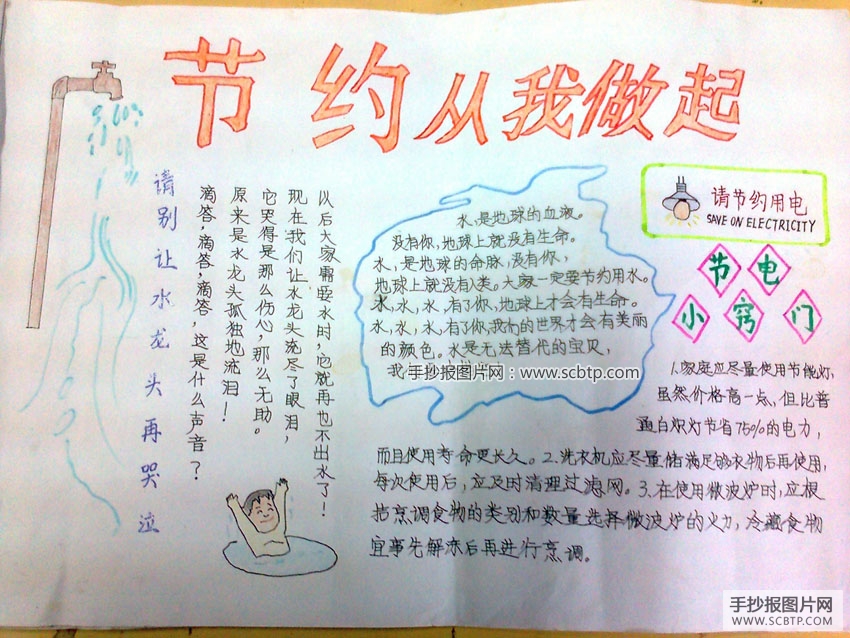 节约从我做起
请别让水龙头再哭泣
滴答，滴答，滴答，这是什么声音？
原来是水龙头孤独地流泪！
它哭得是那么伤心，那么无助。
现在我们让水龙头流尽了眼泪，
以后大家需要水时，它就再也不出水了！
水，是地球的血液。
没有你，地球上就没有生命。
水，是地球的命脉，没有你，
地球上就没有人类。大家一定要节约用水。
水，水，水，有了你，地球上才会有生命。
水，水，水，有了你，我们的世界才会有美丽
的颜色。水是无法替代的宝贝，
我
手抄报图片网：www.scbtp.com
请节约用电
SAVE ON ELECTRICITY
节电
小窍门
1.家庭应尽量使用节能灯，
虽然价格高一点，但比普
通白炽灯节省75%的电力，
而且使用寿命更长久。2.洗衣机应尽量储满足够衣物后再使用，
每次使用后，应及时清理过滤网。3.在使用微波炉时，应根
据烹调食物的类别和数量选择微波炉的火力，冷藏食物
宜事先解冻后再进行烹调。
手抄报图片网
WWW.SCBTP.COM